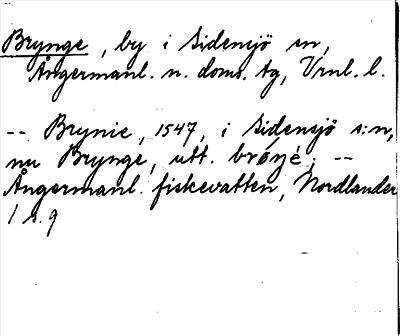 Brynge, by i Sidensjö sn,
Ångermanl. n. doms. tg, Vrnl. l.
-- Brynie, 1547, i Sidensjö s:n,
nu Brynge, utt. brønjé; --
Ångermanl. fiskevatten, Nordlander
1 s. 9